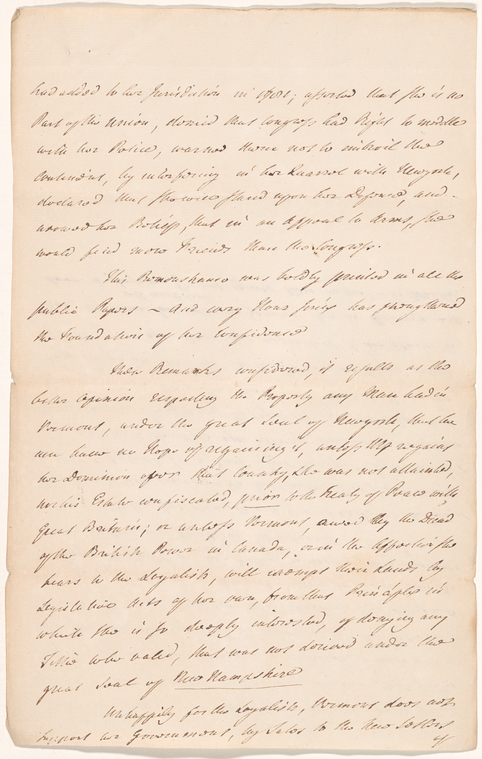 had added to her Jurisdiction in 1781; asserted that she is no
Part of the Union, denied that Congress had Right to meddle
with her Police, warned them not to imbroil the
Continent, by interfering in her Quarrel with Newyork,
declared that she wou'd stand upon her Defence, and
avowed her Belief, that in an Appeal to Arms, she
would find more Friends than the Congress.
This Remonstrance was boldly printed in all the
public Papers — And every Hour since has strengthened
the Foundation of her Confidence
These Remarks considered, it results as the
better opinion respecting the Property any Man had in
Vermont, under the great Seal of Newyork, that he
can have no Hope of regaining it, unless NY regains
her Dominion over that County, & he was not attainted,
nor his Estate confiscated, prior to the Treaty of Peace with
Great Britain; or unless Vermont, awed by the Dread
of the British Power in Canada, or in the Affection she
bears to the Loyalists, will exempt their Lands by
Legislative Acts of her own, from that Principle in
which she is so deeply interested, of denying any
Title to be valid, that was not derived under the
great Seal of New Hampshire
Unhappily for the Loyalists, Vermont does not
support her Government, by Sales to the New Settlers
of